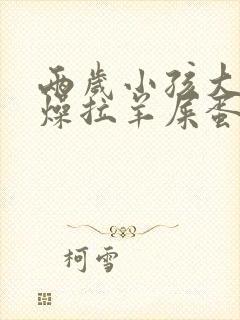 两岁小孩大
燥拉羊屎蛋
柯雪